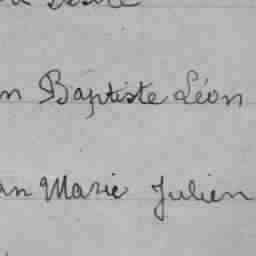 n Baptiste Léon
an Marie Julien